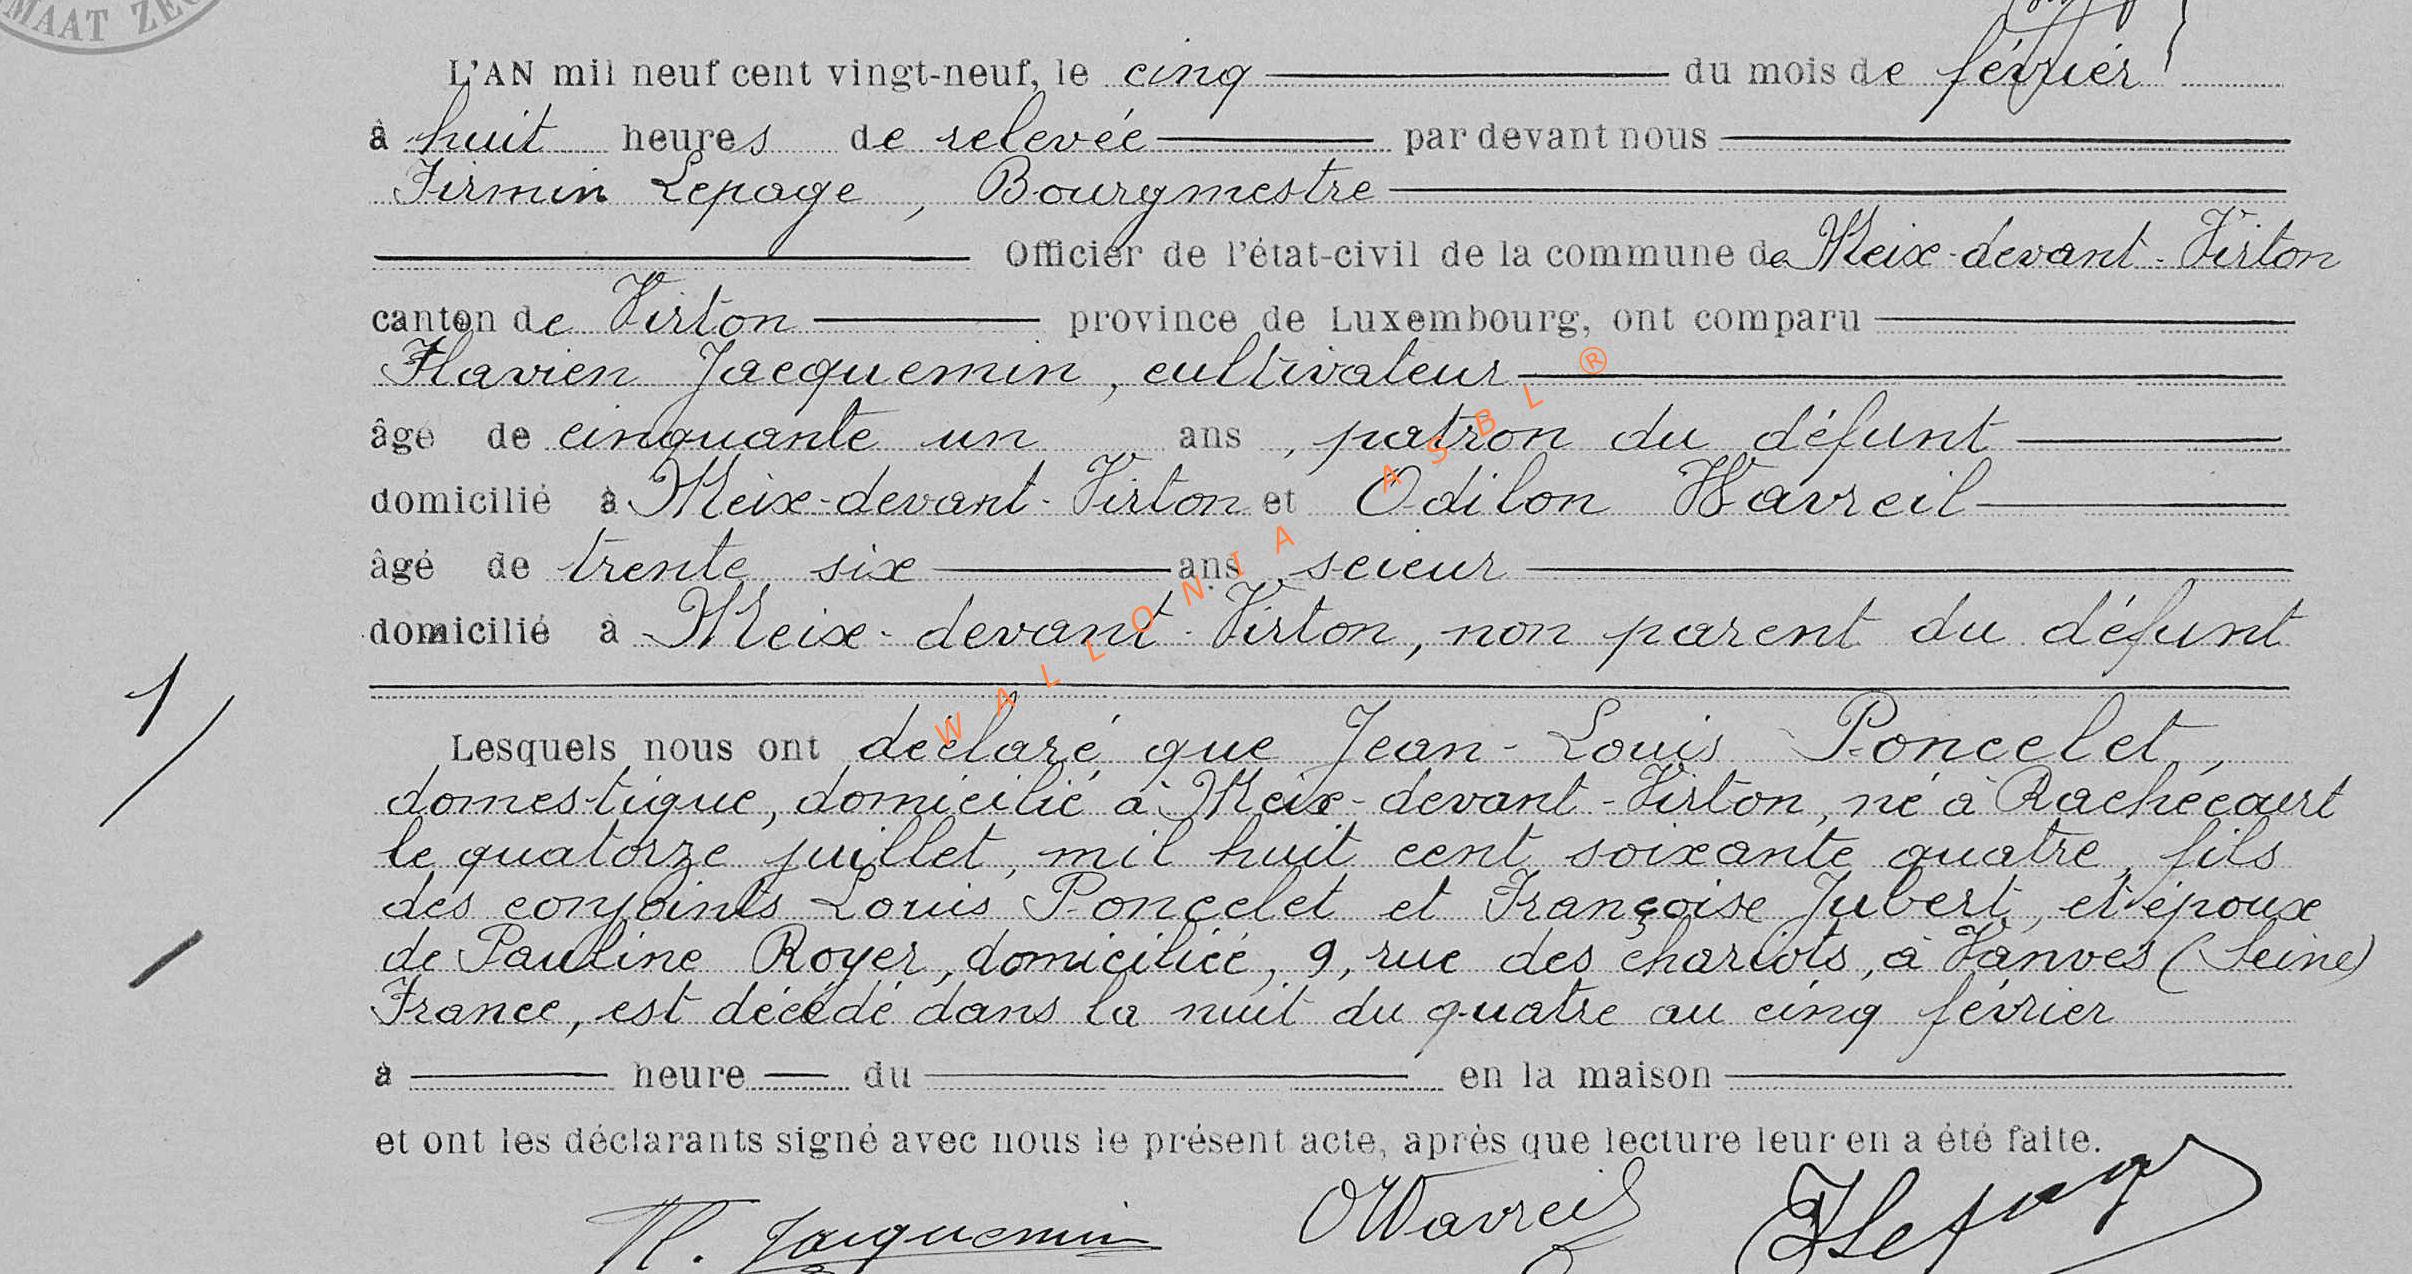 MAAT ZEG
L'AN mil neuf cent vingt-neuf, le cinq du mois de février
à huit heures de relevée par devant nous
Firmin Lepage, Bourgmestre
Officier de l'état-civil de la commune de Meix-devant-Virton
canton de Virton province de Luxembourg, ont comparu
Flavien Jacquemin, cultivateur
âgé de cinquante un ans, patron du défunt
domicilié à Meix-devant-Virton et Odilon Wavreil
âgé de trente six ans, scieur
domicilié à Meix-devant-Virton, non parent du défunt
1/
Lesquels nous ont déclaré que Jean-Louis Poncelet,
domestique, domicilié à Meix-devant-Virton, né à Rachécourt
le quatorze juillet, mil huit cent soixante quatre, fils
des conjoints Louis Poncelet et Françoise Jubert, et époux
de Pauline Royer, domiciliée, 9, rue des chariots, à Vanves (Seine)
France, est décédé dans la nuit du quatre au cinq février
à heure du en la maison
et ont les déclarants signé avec nous le présent acte, après que lecture leur en a été faite.
Fl. Jacquemin OWavreil FLepage
WALLONIA ASBL ®